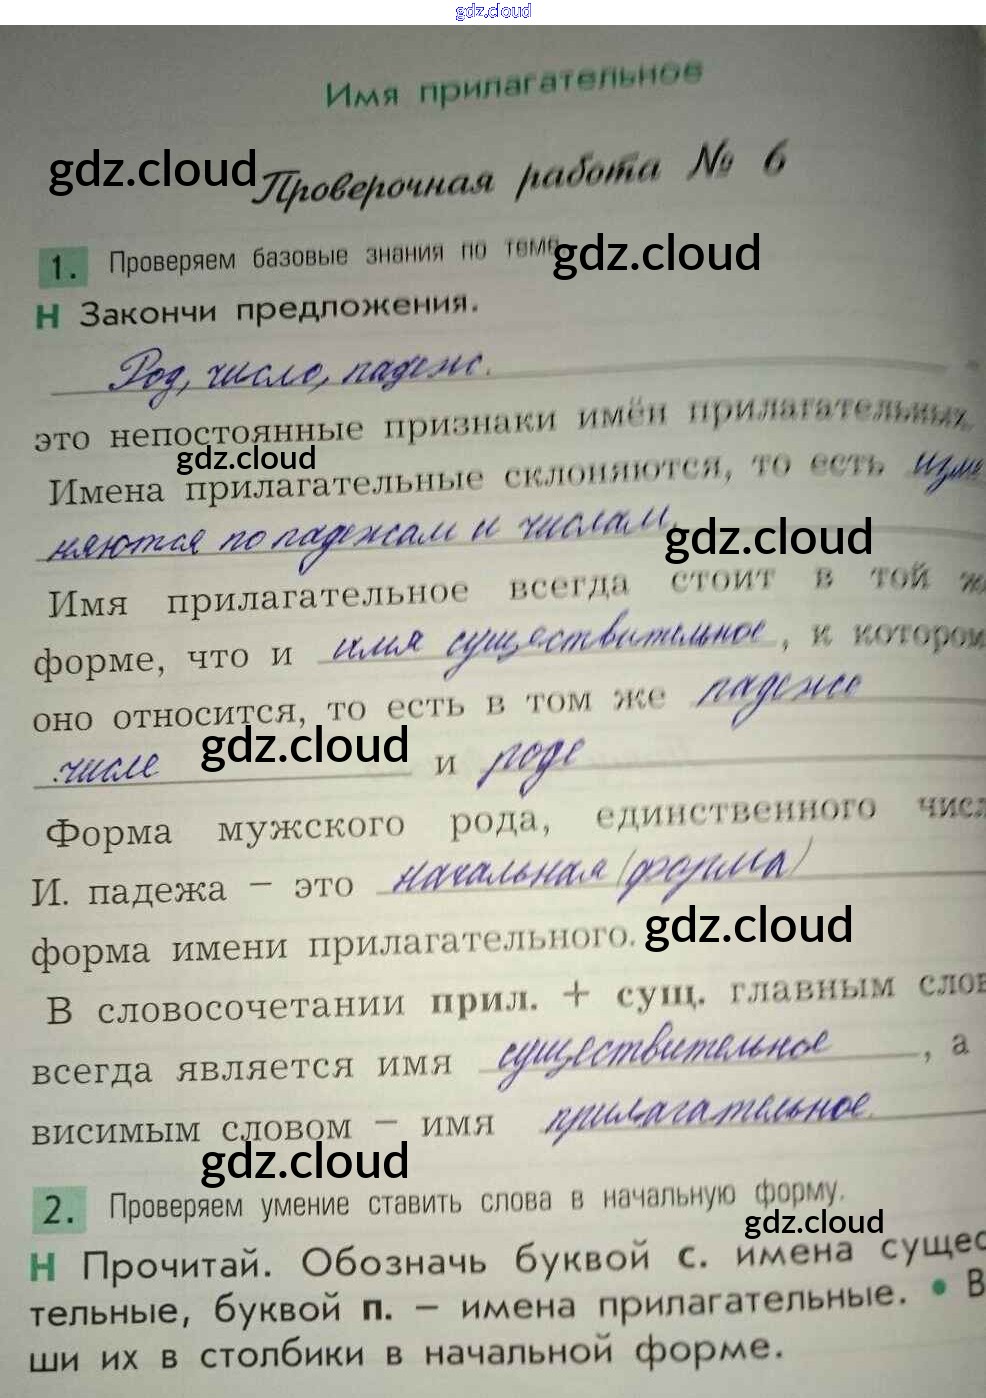 gdz.cloud
Имя прилагательное
gdz.cloud
Проверочная работа № 6
1. Проверяем базовые знания по теме
gdz.cloud
Н Закончи предложения.
Род, число, падеж.
это непостоянные признаки имён прилагательных.
gdz.cloud
Имена прилагательные склоняются, то есть изме
няются по падежам и числам.
gdz.cloud
Имя прилагательное всегда стоит в той ж
форме, что и имя существительное, к котором
оно относится, то есть в том же падеже
gdz.cloud
числе и роде
Форма мужского рода, единственного числ
И. падежа – это начальная (форма)
gdz.cloud
форма имени прилагательного.
В словосочетании прил. + сущ. главным слов
всегда является имя существительное, а
висимым словом – имя прилагательное.
gdz.cloud
2. Проверяем умение ставить слова в начальную форму.
gdz.cloud
Н Прочитай. Обозначь буквой с. имена сущес
тельные, буквой п. – имена прилагательные. • В
ши их в столбики в начальной форме.